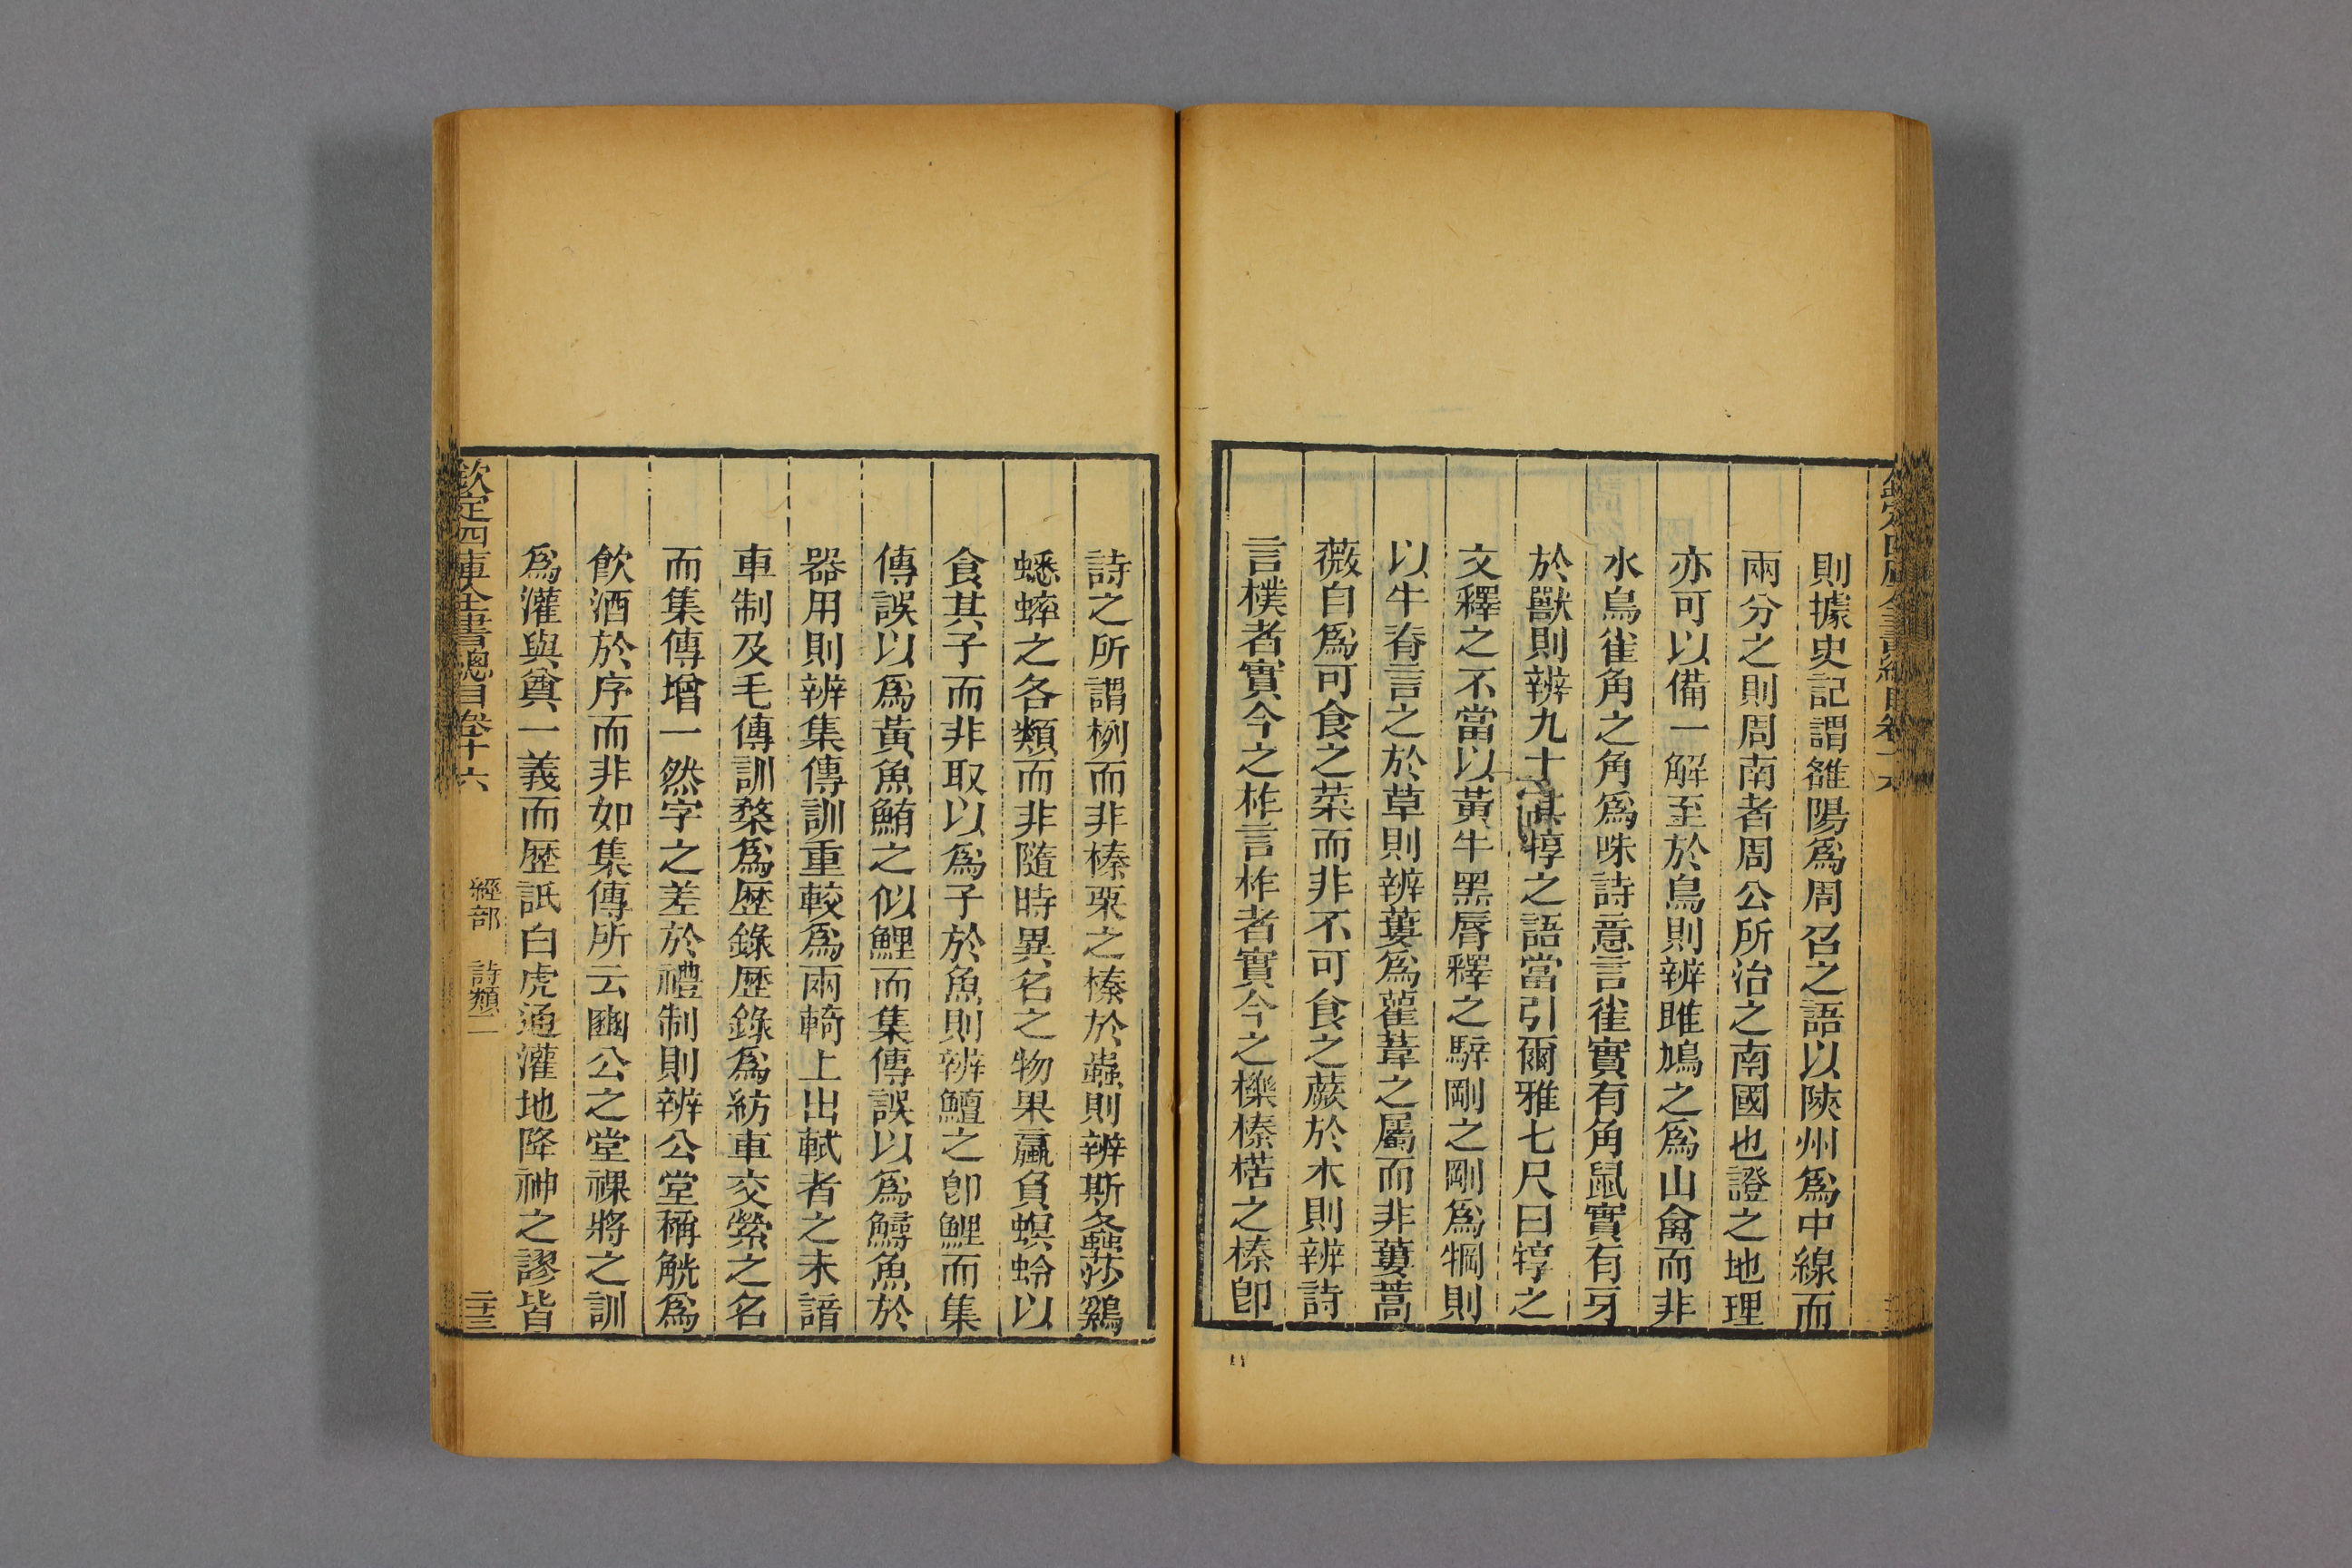 則據史記謂雒陽爲周召之語以陝州爲中線而
兩分之則周南者周公所治之南國也證之地理
亦可以備一解至於鳥則辨雎鳩之爲山禽而非
水鳥雀角之角爲咮詩意言雀實有角鼠實有牙
於獸則辨九十其犉之語當引爾雅七尺曰犉之
文釋之不當以黃牛黑脣釋之騂剛之剛爲犅則
以牛脊言之於草則辨蔞爲雚葦之屬而非蔞蒿
薇自爲可食之菜而非不可食之蕨於木則辨詩
言樸者實今之柞言柞者實今之櫟榛楛之榛卽
詩之所謂栵而非榛栗之榛於蟲則辨斯螽莎鷄
蟋蟀之各類而非隨時異名之物果蠃負螟蛉以
食其子而非取以爲子於魚則辨鱣之卽鯉而集
傳誤以爲黃魚鮪之似鯉而集傳誤以爲鱘魚於
器用則辨集傳訓重較爲兩輢上出軾者之未諳
車制及毛傳訓楘爲歴錄歴錄爲紡車交縈之名
而集傳增一然字之差於禮制則辨公堂稱觥爲
飲酒於序而非如集傳所云豳公之堂祼將之訓
爲灌與奠一義而歴詆白虎通灌地降神之謬皆
欽定四庫全書總目卷十六
經部　詩類二
二十三